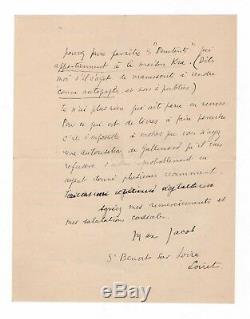 pouvez faire paraître "
appartiennent à la maison Kra. (Dites
moi s'il s'agit de manuscrits à vendre
comme autographes et non à publier)
Je n'ai plus rien qui ait paru en revues.
Pour ce qui est de livres à faire paraître
c'est impossible à moins que vous n'ayez
une autorisation de Gallimard et il vous
refusera probablement en
ayant donné plusieurs récemment.
Agréez mes remerciements et
mes salutations cordiales
Max Jacob
St Benoît sur Loire
Loiret